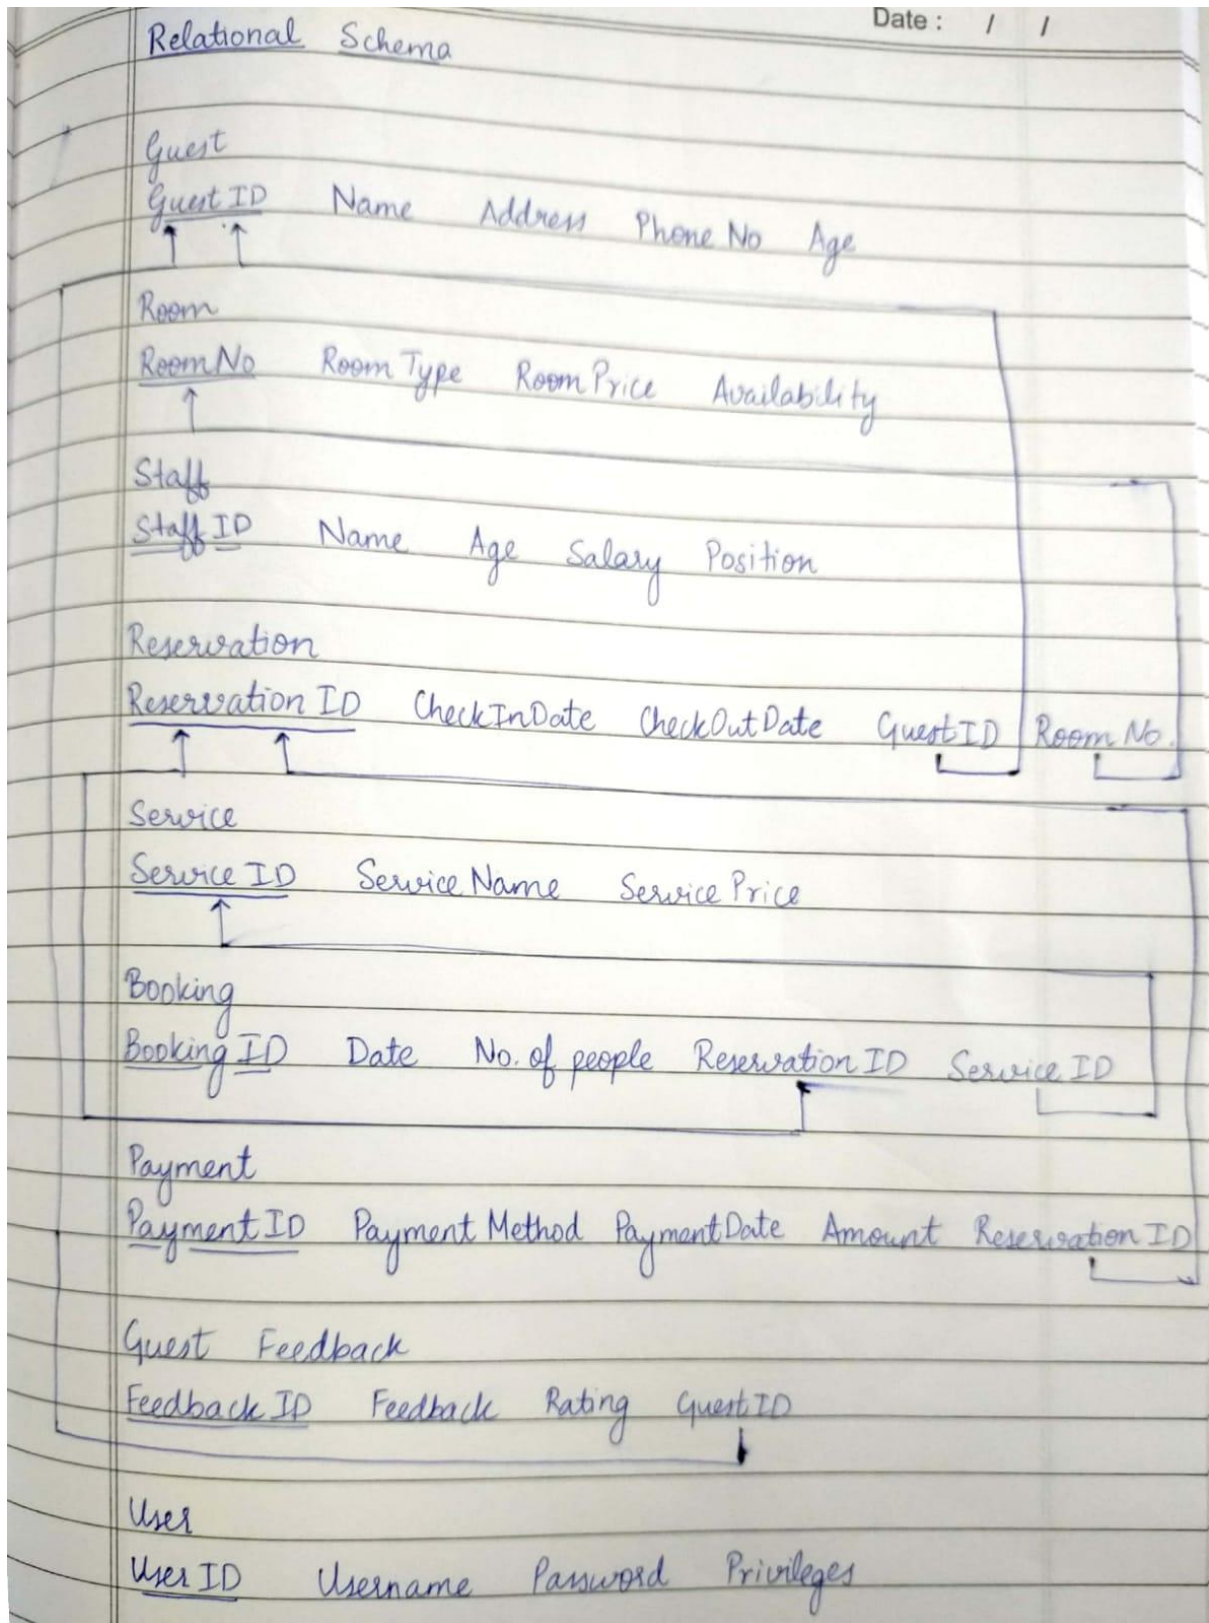 Date : / /
Relational Schema
Guest
Guest ID Name Address Phone No Age
Room
RoomNo Room Type Room Price Availability
Staff
Staff ID Name Age Salary Position
Reservation
Reservation ID CheckInDate CheckOutDate GuestID Room No.
Service
Service ID Service Name Service Price
Booking
Booking ID Date No. of people Reservation ID Service ID
Payment
Payment ID Payment Method PaymentDate Amount Reservation ID
Guest Feedback
Feedback ID Feedback Rating GuestID
User
User ID Username Password Privileges